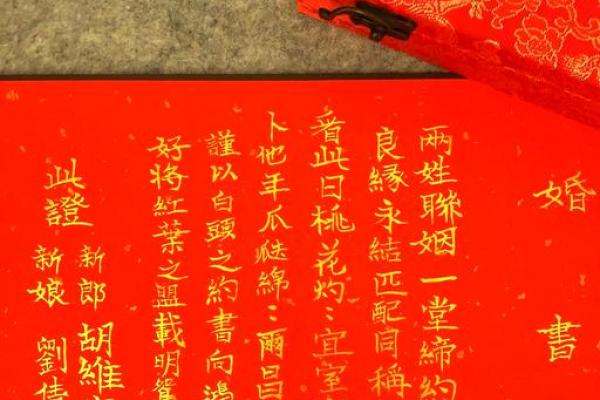 婚書
兩姓聯姻一堂締約
良緣永結匹配同稱
看此日桃花灼⺀宜室
卜他年瓜瓞綿⺀爾昌
謹以白頭之約書向鴻
好將紅葉之盟載明鴛
此證
新郎 胡維
新娘 劉倩